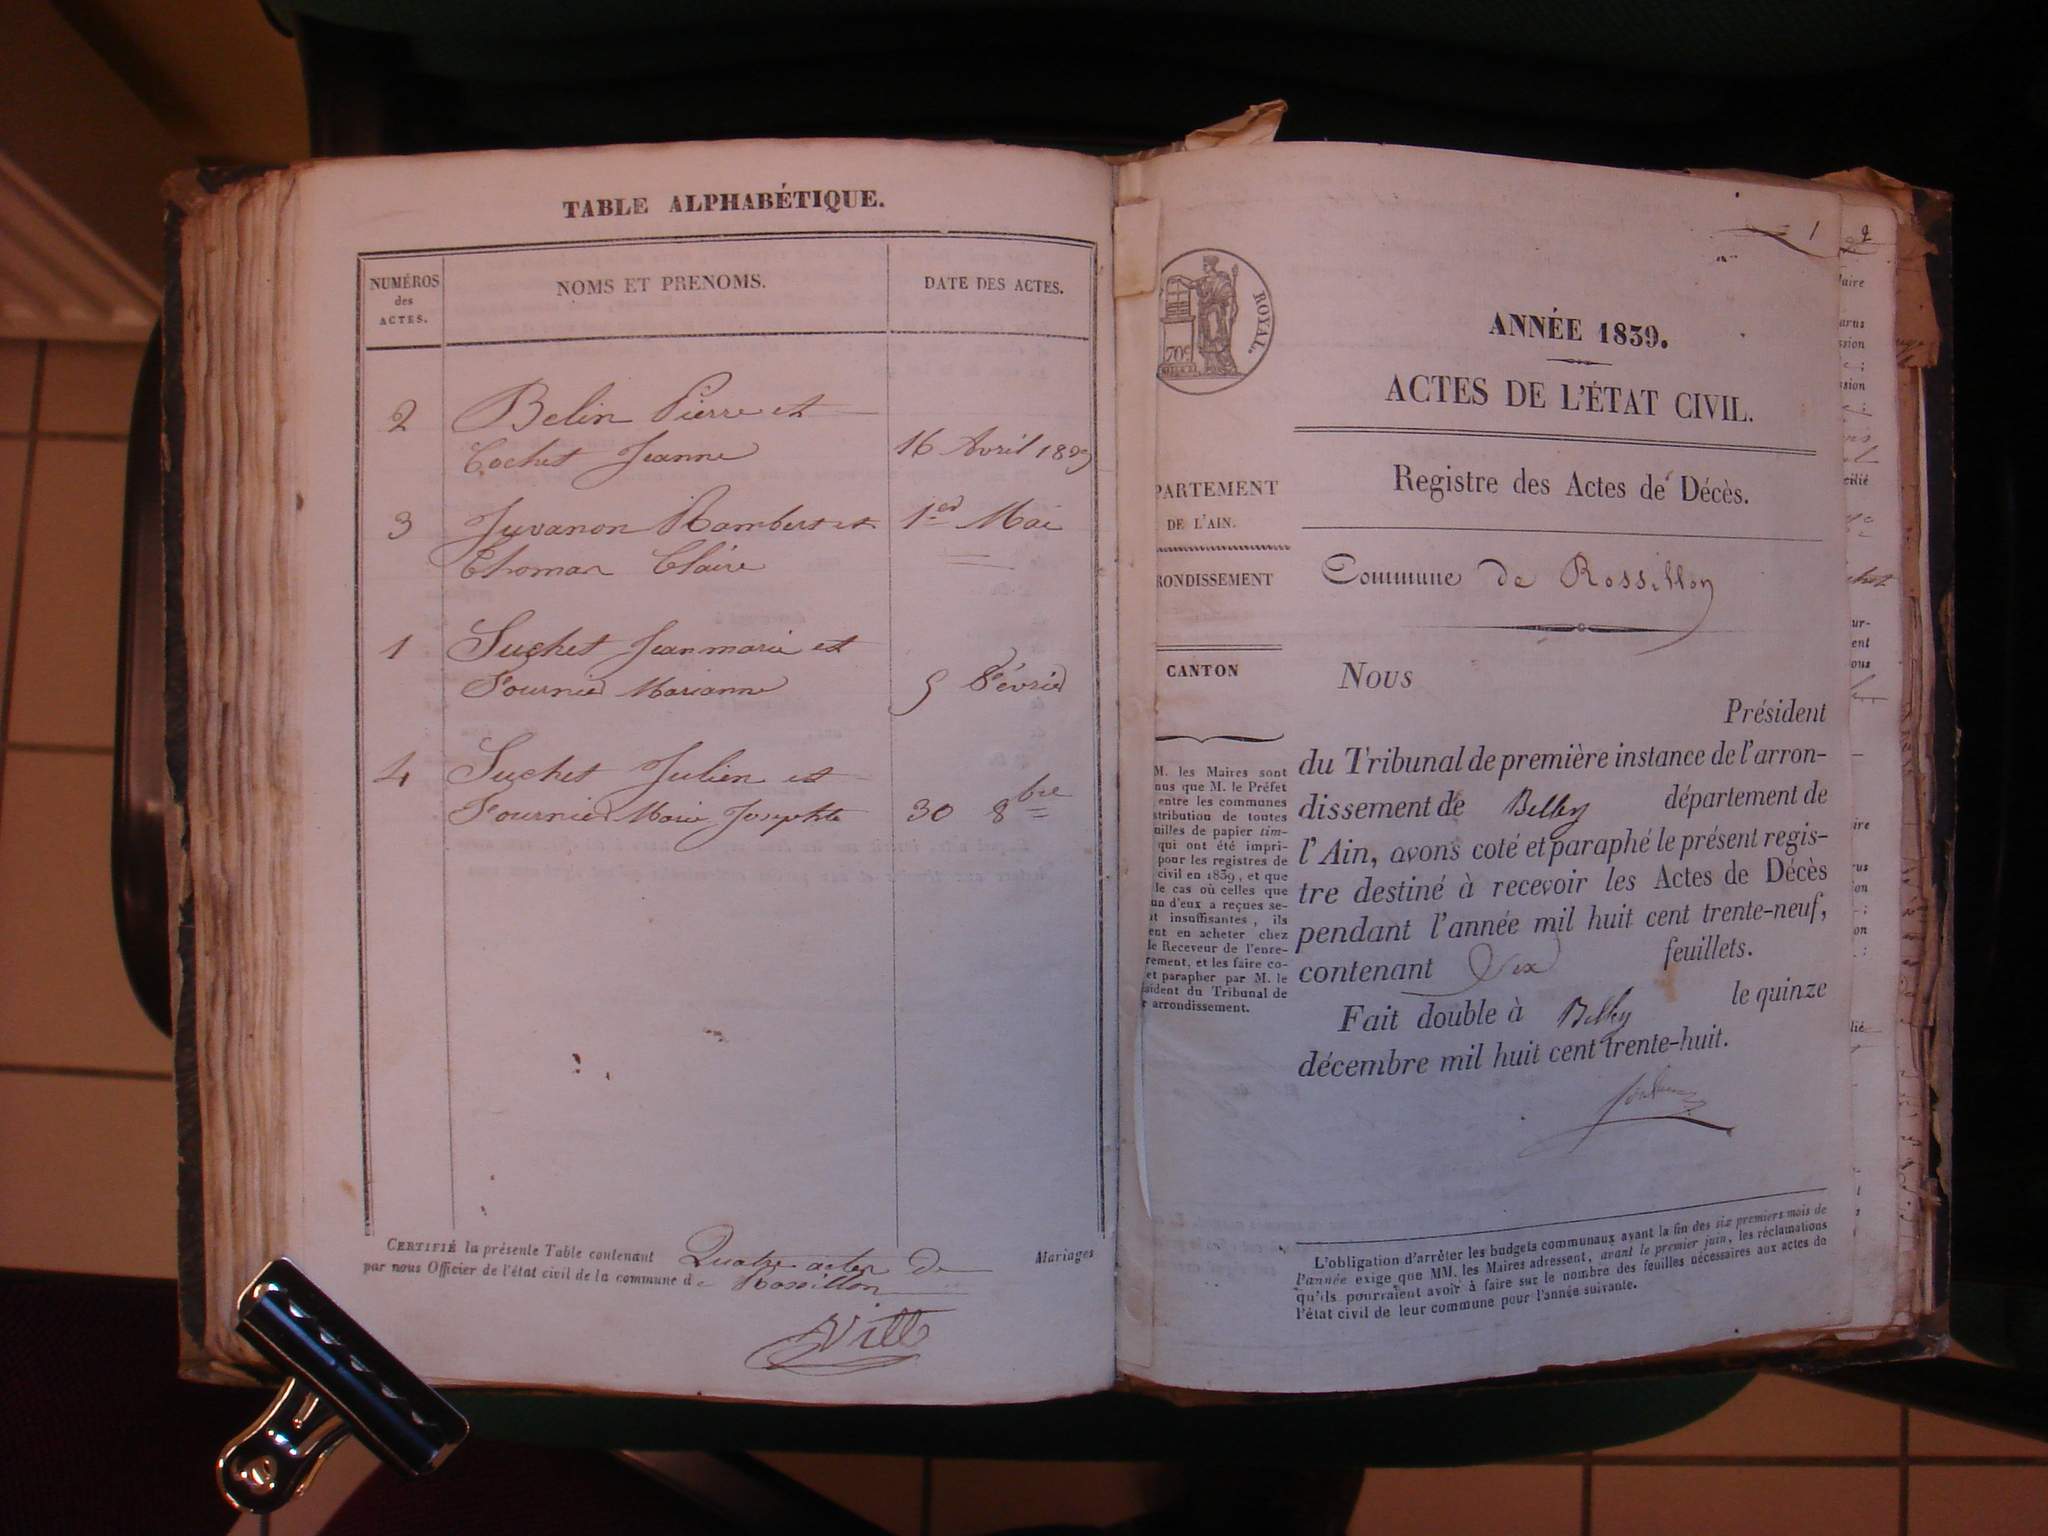 TABLE ALPHABÉTIQUE.
NUMÉROS
des
ACTES.
NOMS ET PRENOMS.
DATE DES ACTES.
2 Belin Pierre et
Cochet Jeanne 16 Avril 1839
3 Juvanon Rambert et 1er Mai
Thoman Claire
1 Suchet Jeanmarie et
Fournier Marianne 5 Février
4 Suchet Julien et
Fournier Marie Josephte 30 8bre
CERTIFIÉ la présente Table contenant Quatre actes de Mariages
par nous Officier de l'état civil de la commune de Rossillon
Vitte
1
2
ROYAL.
70c
ANNÉE 1839.
ACTES DE L'ÉTAT CIVIL.
PARTEMENT
DE L'AIN.
RONDISSEMENT
CANTON
M. les Maires sont
nus que M. le Préfet
entre les communes
stribution de toutes
uilles de papier tim-
qui ont été impri-
pour les registres de
civil en 1839, et que
le cas où celles que
un d'eux a reçues se-
t insuffisantes, ils
ent en acheter chez
le Receveur de l'enre-
rement, et les faire co-
et parapher par M. le
sident du Tribunal de
r arrondissement.
Registre des Actes de Décès.
Commune de Rossillon
Nous
Président
du Tribunal de première instance de l'arron-
dissement de Belley département de
l'Ain, avons coté et paraphé le présent regis-
tre destiné à recevoir les Actes de Décès
pendant l'année mil huit cent trente-neuf,
contenant Six feuillets.
Fait double à Belley le quinze
décembre mil huit cent trente-huit.
L'obligation d'arrêter les budgets communaux avant la fin des six premiers mois de
l'année exige que MM. les Maires adressent, avant le premier juin, les réclamations
qu'ils pourraient avoir à faire sur le nombre des feuilles nécessaires aux actes de
l'état civil de leur commune pour l'année suivante.